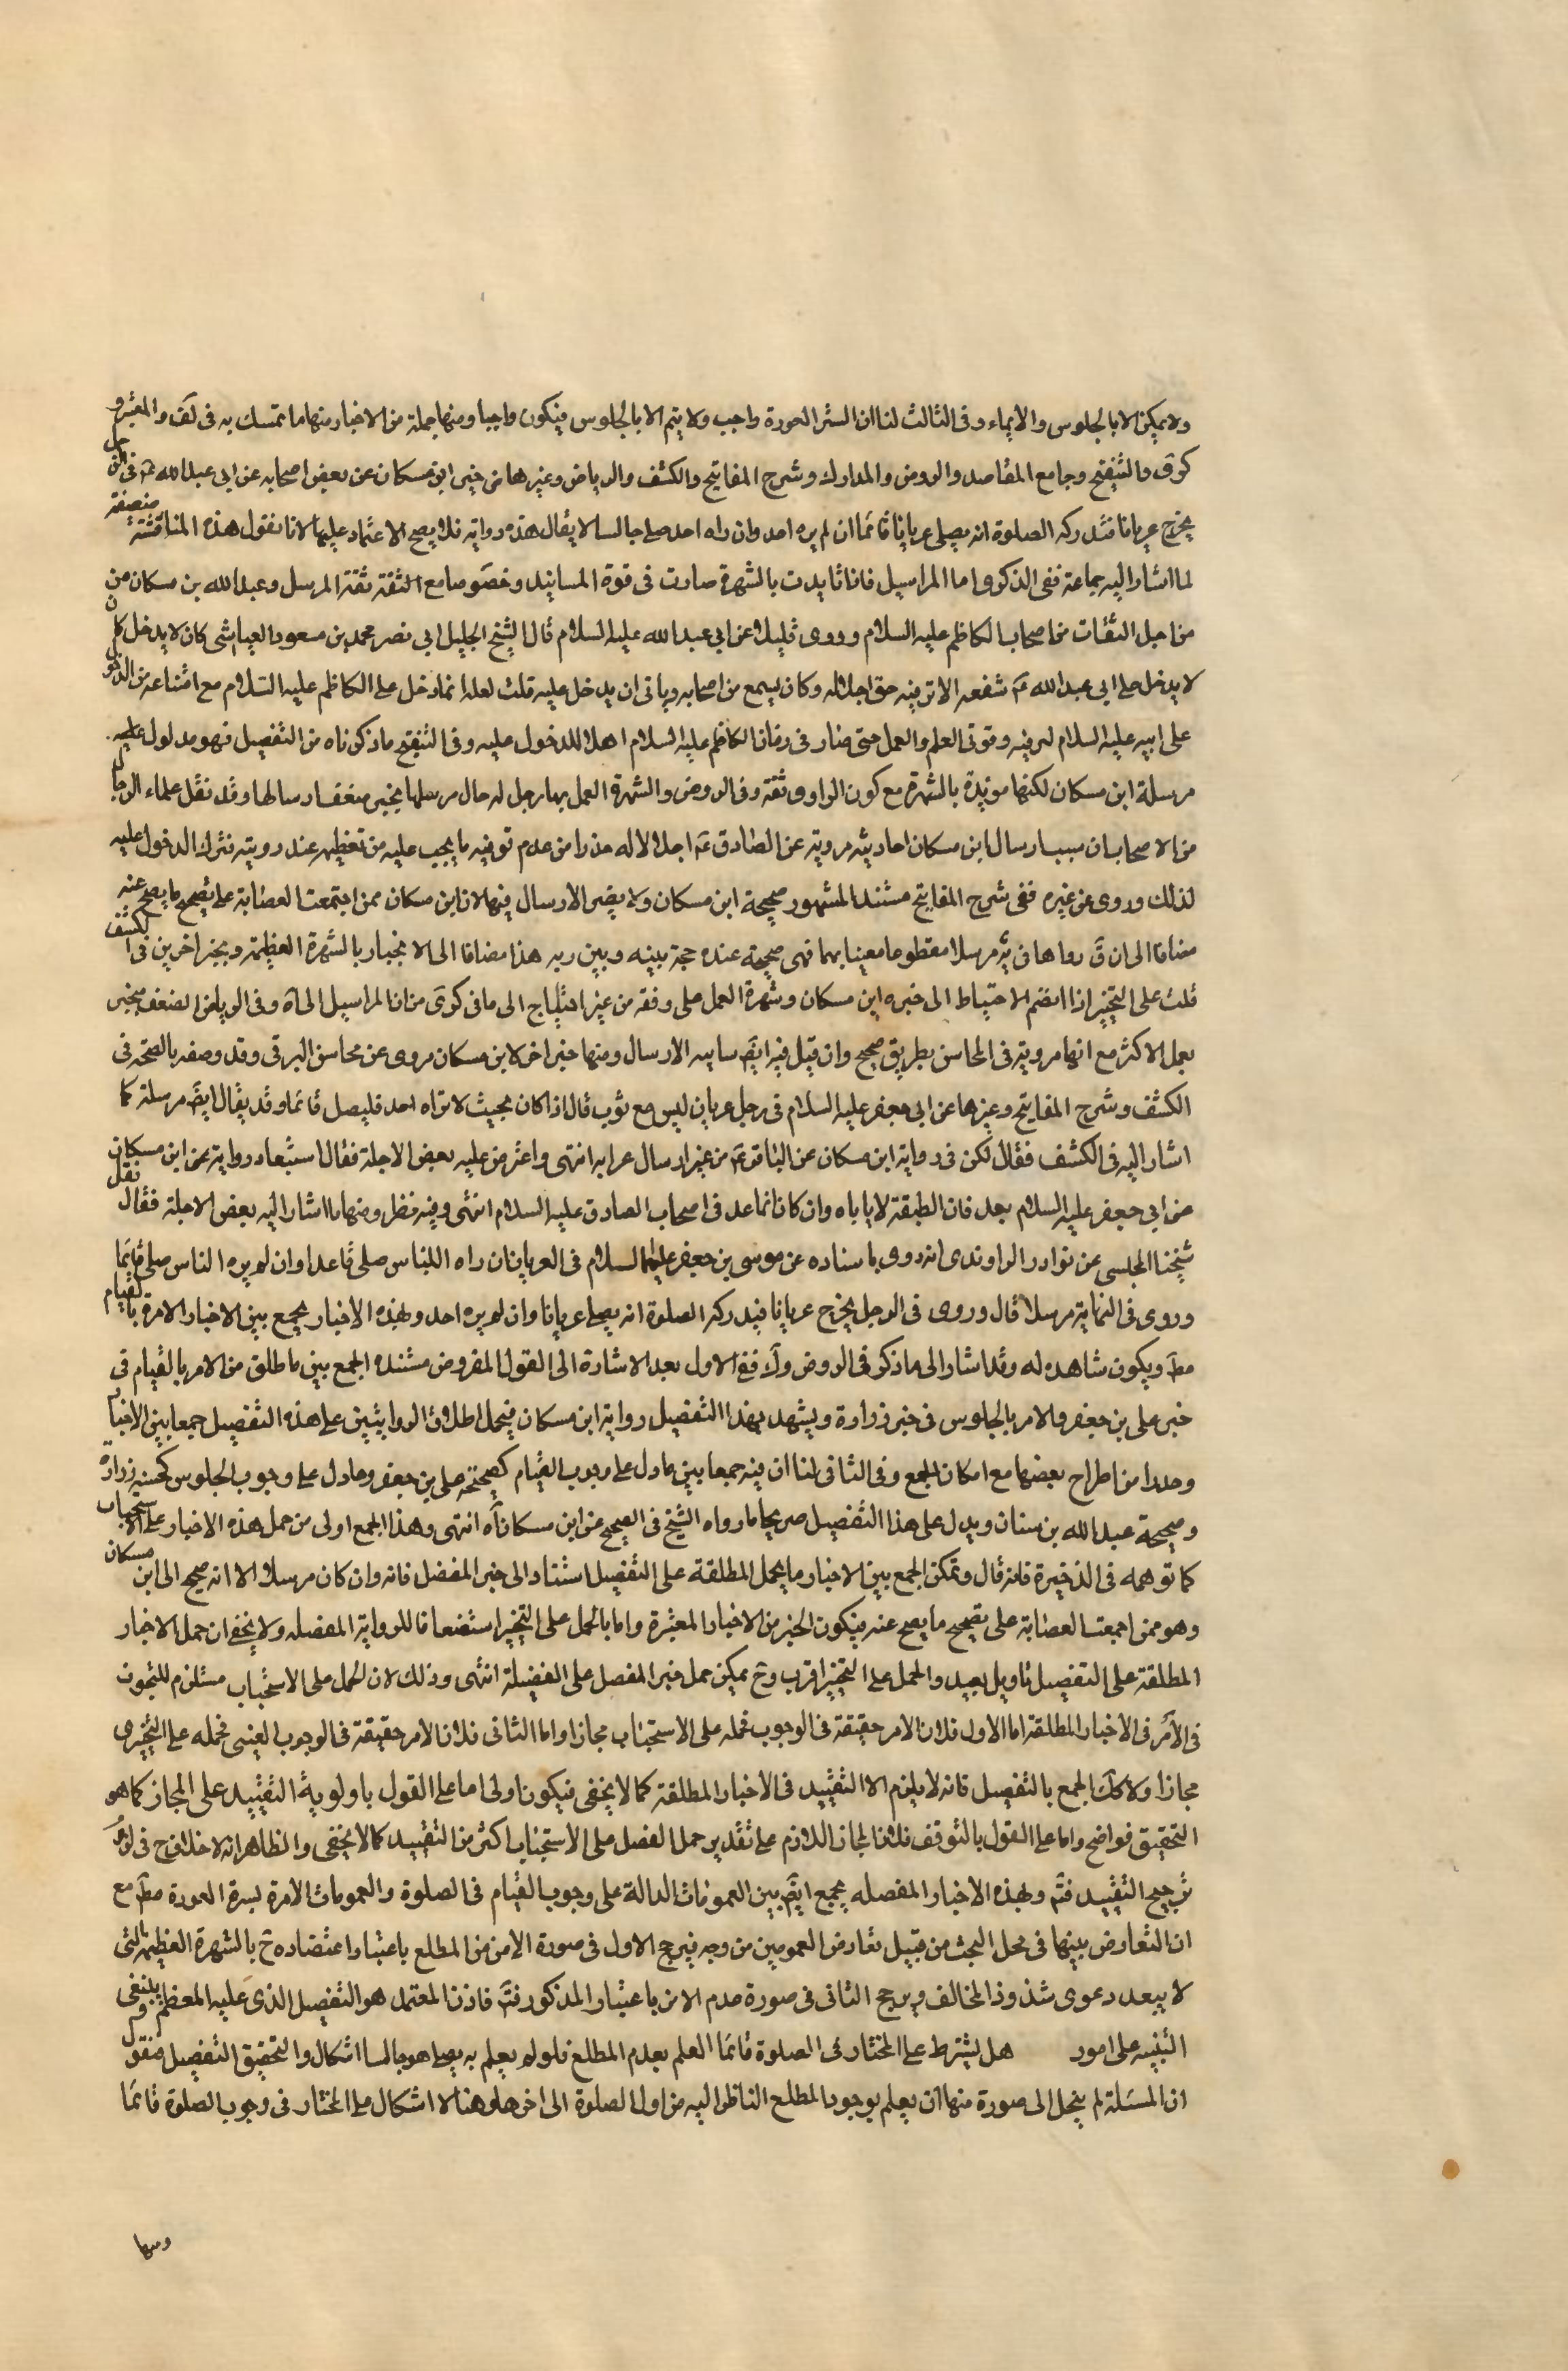 ولا يمكن الا بالجلوس والايماء وفى الثالث لنا ان الستر العورة واجب ولا يتم الا بالجلوس فيكون واجبا ومنها جملة من الاخبار منها ما تمسك به فى لف والمعتبر و
كرى والتنقيح وجامع المقاصد والروض والمدارك وشرح المفاتيح والكشف والرياض وغيرها من خبر ابن مسكان عن بعض اصحابه عن ابى عبد الله ع فى الرجل
يخرج عريانا فتدركه الصلوة انه يصلى عريانا قائما ان لم يره احد وان راه احد صلى جالسا لا يقال هذه رواية فلا يصح الاعتماد عليها لانا نقول هذه المناقشة ضعيفة
لما اشار اليه جماعة ففى الذكرى اما المراسيل فاذا تايدت بالشهرة صارت فى قوة المسانيد وخصوصا مع الثقة ثقة المرسل وعبد الله بن مسكان من
من اجل الثقات من اصحاب الكاظم عليه السلام وروى قليلا عن ابى عبد الله عليه السلام قال الشيخ الجليل ابى نصر محمد بن مسعود العياشى كان لا يدخل كان
لا يدخل على ابى عبد الله ع شفعه الا تر فيه حق اجلاله وكان يسمع من اصحابه ويابى ان يدخل عليه قلت لعله انما دخل على الكاظم عليه السلام مع امتناعه من الدخول
على ابيه عليه السلام لترفيه وقوتى العلم والعمل حتى صار فى زمان الكاظم عليه السلام اهلا للدخول عليه وفى التنقيح ما ذكرناه من التفصيل فهو مدلول عليه
مرسلة ابن مسكان لكنها مويدة بالشهرة مع كون الراوى ثقة وفى الروض والشهرة العمل بها رجل له حال مرسلها يجبر ضعف ارسالها وقد نقل علماء الرجال
من الاصحاب ان سبب ارسال ابن مسكان احاديثه مروية عن الصادق ع اجلالا له حذرا من عدم توفيه ما يجب عليه من تعظيمه عند رويته فترك الدخول عليه
لذلك وروى عن غيره ففى شرح المفاتيح مستند المشهور صحيحة ابن مسكان ولا يضر الارسال فيها لان ابن مسكان ممن اجتمعت العصابة على تصحيح ما يصح عنه
مضافا الى ان ق رواها فى يه مرسلا مقطوعا معينا بهما فهى صحيحة عنده حجة بينه وبين ربه هذا مضافا الى الانجبار بالشهرة العظيمة وبخبر اخرين فى الكشف
قلت على التخيير اذا انضم الاحتياط الى خبره ابن مسكان وشهرة العمل على وفقه من غير احتياج الى ما فى كرى من ان المراسيل الى آه وفى الرياض الضعف منجبر
بعمل الاكثر مع انها مروية فى المحاسن بطريق صحيح وان قيل فيه ايضا سابيه الارسال ومنها خبر اخر لابن مسكان مروى عن محاسن البرقى وقد وصفه بالصحة فى
الكشف وشرح المفاتيح وغيرها عن ابى جعفر عليه السلام فى رجل عريان ليس مع ثوب قال اذا كان بحيث لا يراه احد فليصل قائما وقد يقال ايضا مرسلة كما
اشار اليه فى الكشف فقال لكن فى رواية ابن مسكان عن الباقر ع من غير ارسال غرابه انتهى واعترض عليه بعض الاجلة فقال استبعاد روايته عن ابن مسكان
عن ابى جعفر عليه السلام بعد فان الطبقة لا ياباه وان كان انما عد فى اصحاب الصادق عليه السلام انتهى وفيه نظر ومنها ما اشار اليه بعض الاجلة فقال نقل
شيخنا المجلسى عن نوادر الراوندى انه روى باسناده عن موسى بن جعفر عليهما السلام فى العريان ان راه الناس صلى قاعدا وان لم يره الناس صلى قائما
وروى فى النهاية مرسلا قال وروى فى الرجل يخرج عريانا فيدركه الصلوة انه يصلى عريانا وان لم يره احد وبهذه الاخبار يجمع بين الاخبار الامرة بالقيام
مط ويكون شاهده له وقد اشار الى ما ذكر فى الروض ولك ففى الاول بعد الاشارة الى القول المفروض مستنده الجمع بين ما طلق من الامر بالقيام فى
خبر على بن جعفر والامر بالجلوس فى خبر زرارة ويشهد بهذا التفصيل رواية ابن مسكان فيحمل اطلاق الروايتين على هذه التفصيل جمعا بين الاخبار
وحذرا من اطراح بعضها مع امكان الجمع وفى الثانى لنا ان فيه جمعا بين ما دل على وجوب القيام كصحيحة على بن جعفر وما دل على وجوب الجلوس كحسنة زرارة
وصحيحة عبد الله بن سنان ويدل على هذا التفصيل صريحا ما رواه الشيخ فى الصحيح عن ابن مسكان آه انتهى وهذا الجمع اولى من حمل هذه الاخبار على الاستحباب
كما توهمه فى الذخيرة فانه قال ويمكن الجمع بين الاخبار ما يحمل المطلقة على التفصيل استنادا الى خبر المفصل فانه وان كان مرسلا الا انه صحيح الى ابن مسكان
وهو ممن اجمعت العصابة على تصحيح ما يصح عنه فيكون الخبر من الاخبار المعتبرة واما بالحمل على التخيير استضعافا للرواية المفصله ولا يخفى ان حمل الاخبار
المطلقة على التفصيل تاويل بعيد والحمل على التخيير اقرب وح يمكن حمل خبر المفصل على الفضيلة انتهى وذلك لان الحمل على الاستحباب مستلزم للتجوز
فى الامر فى الاخبار المطلقة اما الاول فلان الامر حقيقة فى الوجوب فحمله على الاستحباب مجازا واما الثانى فلان الامر حقيقة فى الوجوب العينى فحمله على التخييرى
مجازا ولا كك الجمع بالتفصيل فانه لا يلزم الا التقييد فى الاخبار المطلقة كما لا يخفى فيكون اولى اما على القول باولوية التقييد على المجاز كما هو
التحقيق فواضح واما على القول بالتوقف فلان المجاز اللازم على تقدير حمل المفصل على الاستحباب اكثر من التقييد كما لا يخفى والظاهر انه لا خلاف ح فى لزوم
ترجيح التقييد فتم وبهذه الاخبار المفصله يجمع ايضا بين العمومات الدالة على وجوب القيام فى الصلوة والعمومات الامرة بسترة العورة مط مع
ان التعارض بينها فى محل البحث من قبيل تعارض العمومين من وجه فيرجح الاول فى صورة الامن من المطلع باعتبار اعتضاده ح بالشهرة العظيمة التى
لا يبعد دعوى شذوذ المخالف ويرجح الثانى فى صورة عدم الامن باعتبار المذكور فتم فاذن المعتمد هو التفصيل الذى عليه المعظم وينبغى
التنبيه على امور هل يشترط على المختار فى الصلوة قائما العلم بعدم المطلع فلو لم يعلم به يصلى هو جالسا اشكال والتحقيق التفصيل فنقول
ان المسئلة لم ينحل الى صورة منها ان يعلم بوجود المطلع الناظر اليه من اول الصلوة الى اخرها وهنا لا اشكال على المختار فى وجوب الصلوة قائما
ومنها